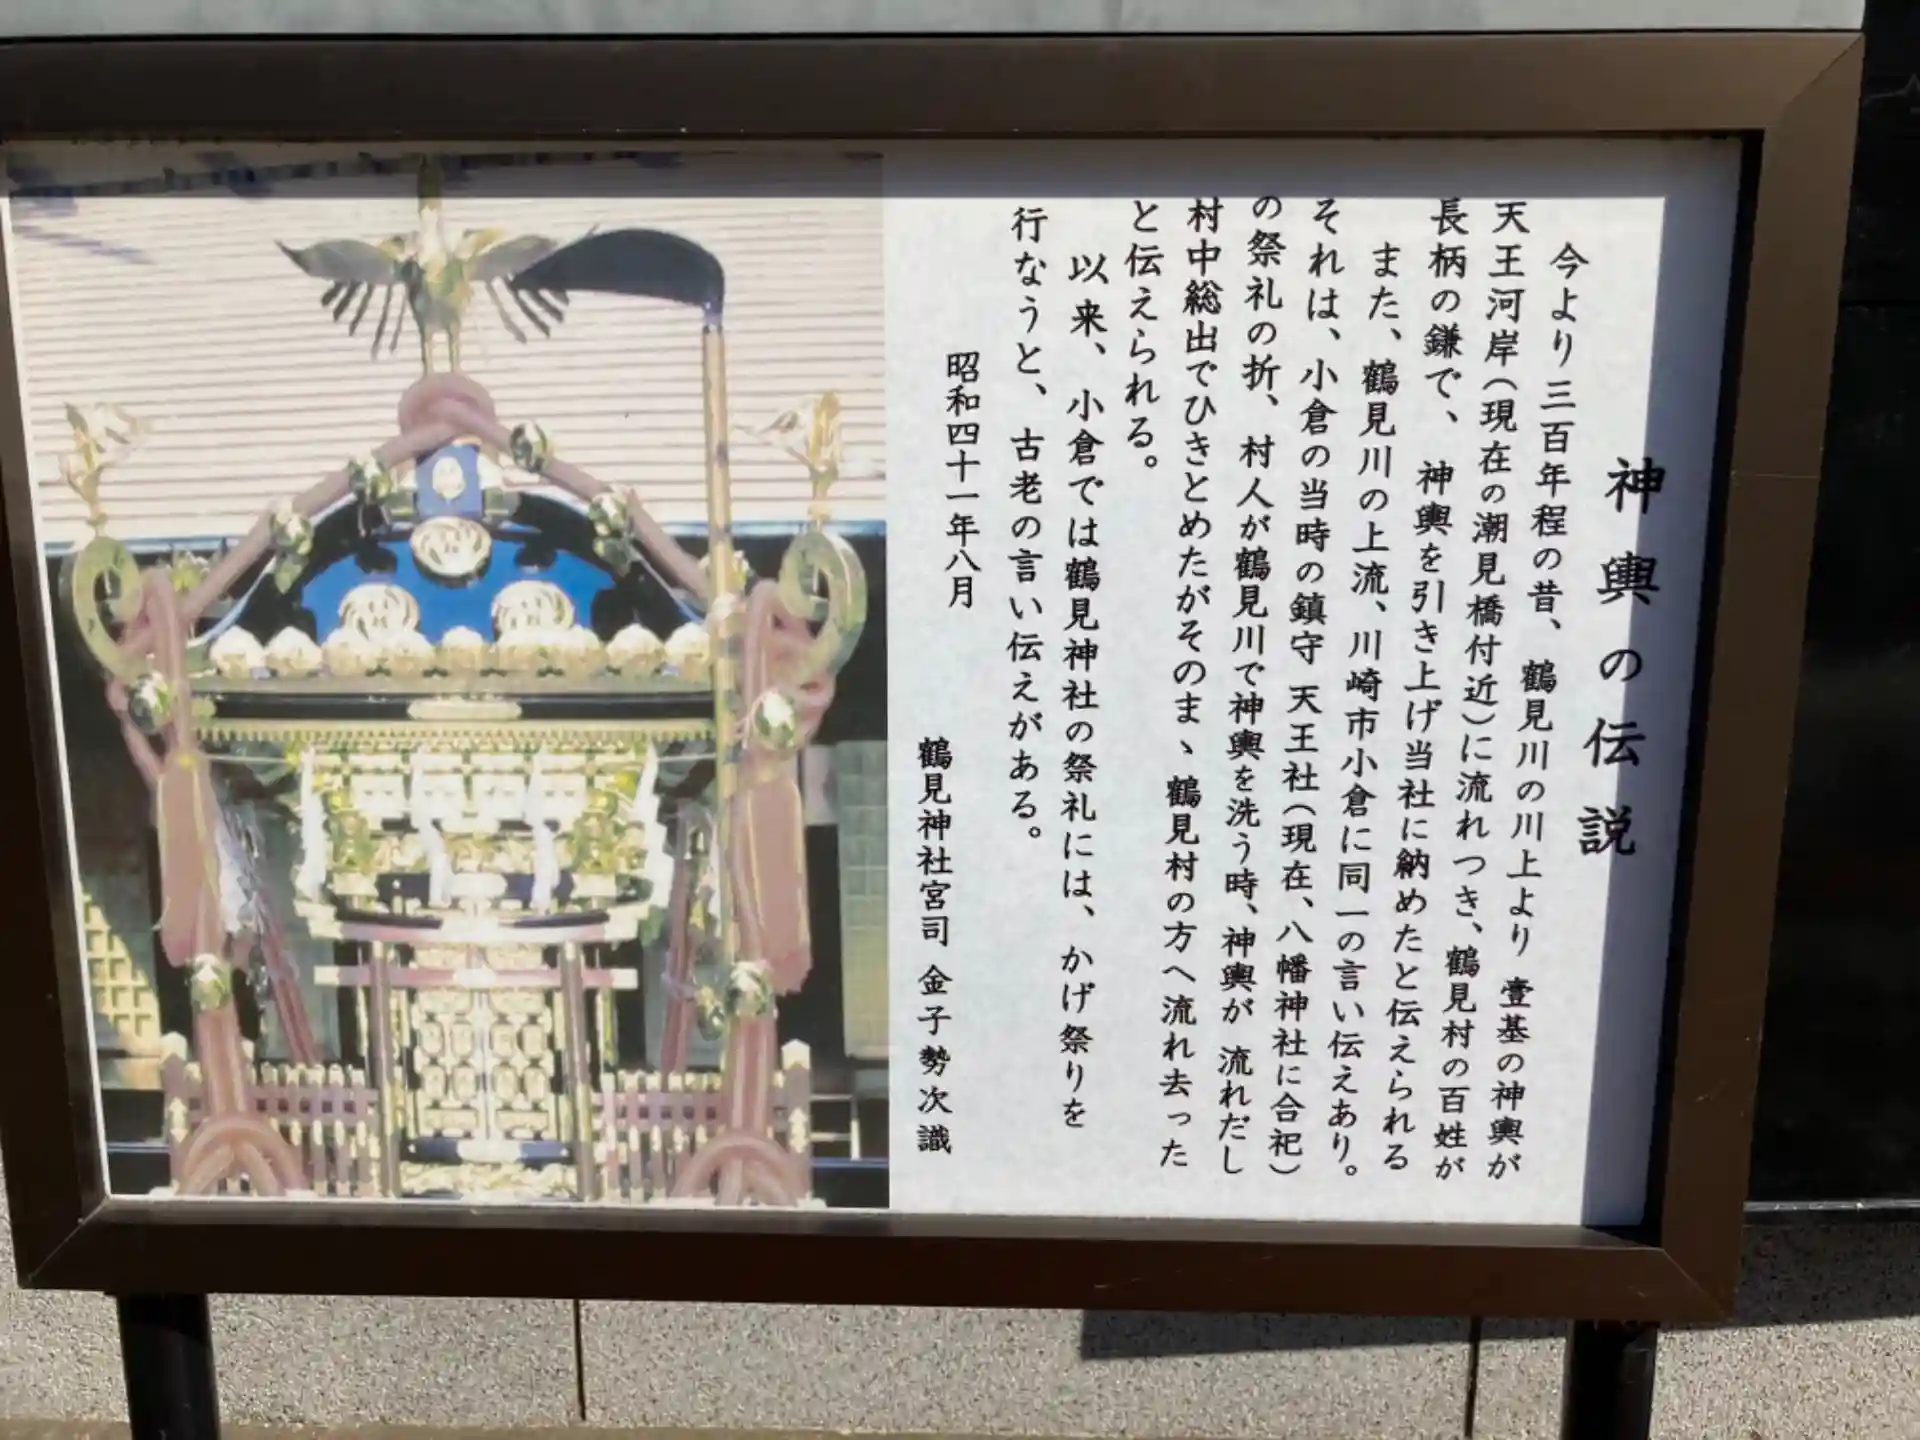 神輿の伝説
今より三百年程の昔、鶴見川の川上より 壹基の神輿が
天王河岸(現在の潮見橋付近)に流れつき、鶴見村の百姓が
長柄の鎌で、神輿を引き上げ当社に納めたと伝えられる
また、鶴見川の上流、川崎市小倉に同一の言い伝えあり。
それは、小倉の当時の鎮守 天王社(現在、八幡神社に合祀)
の祭礼の折、村人が鶴見川で神輿を洗う時、神輿が 流れだし
村中総出でひきとめたがそのまゝ、鶴見村の方へ流れ去った
と伝えられる。
以来、小倉では鶴見神社の祭礼には、かげ祭りを
行なうと、古老の言い伝えがある。
昭和四十一年八月
鶴見神社宮司 金子勢次識